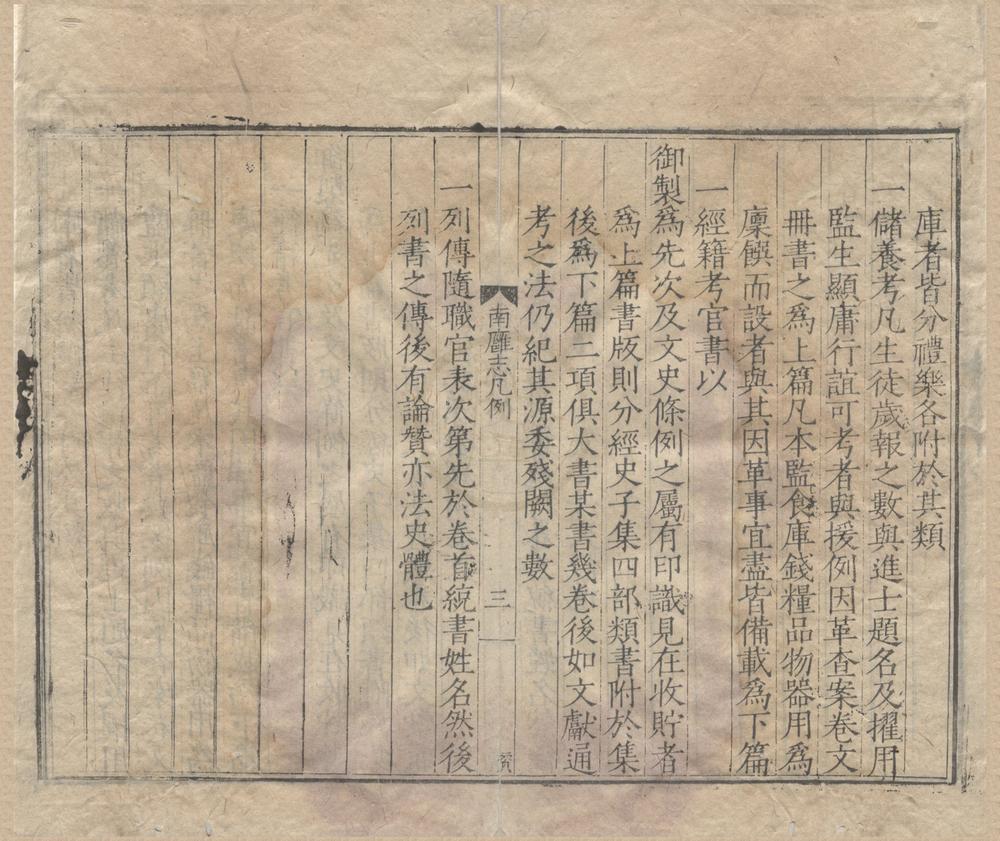 庫者皆分禮樂各附於其類
一儲養考凡生徒歲報之數與進士題名及擢用
監生顯庸行誼可考者與援例因革查案卷文
冊書之爲上篇凡本監食庫錢糧品物器用爲
廩饌而設者與其因革事宜盡皆備載爲下篇
一經籍考官書以
御製爲先次及文史條例之屬有印識見在收貯者
爲上篇書版則分經史子集四部類書附於集
後爲下篇二項俱大書某書幾卷後如文獻通
考之法仍紀其源委殘闕之數
南廱志凡例
三
一列傳隨職官表次第先於卷首統書姓名然後
列書之傳後有論贊亦法史體也